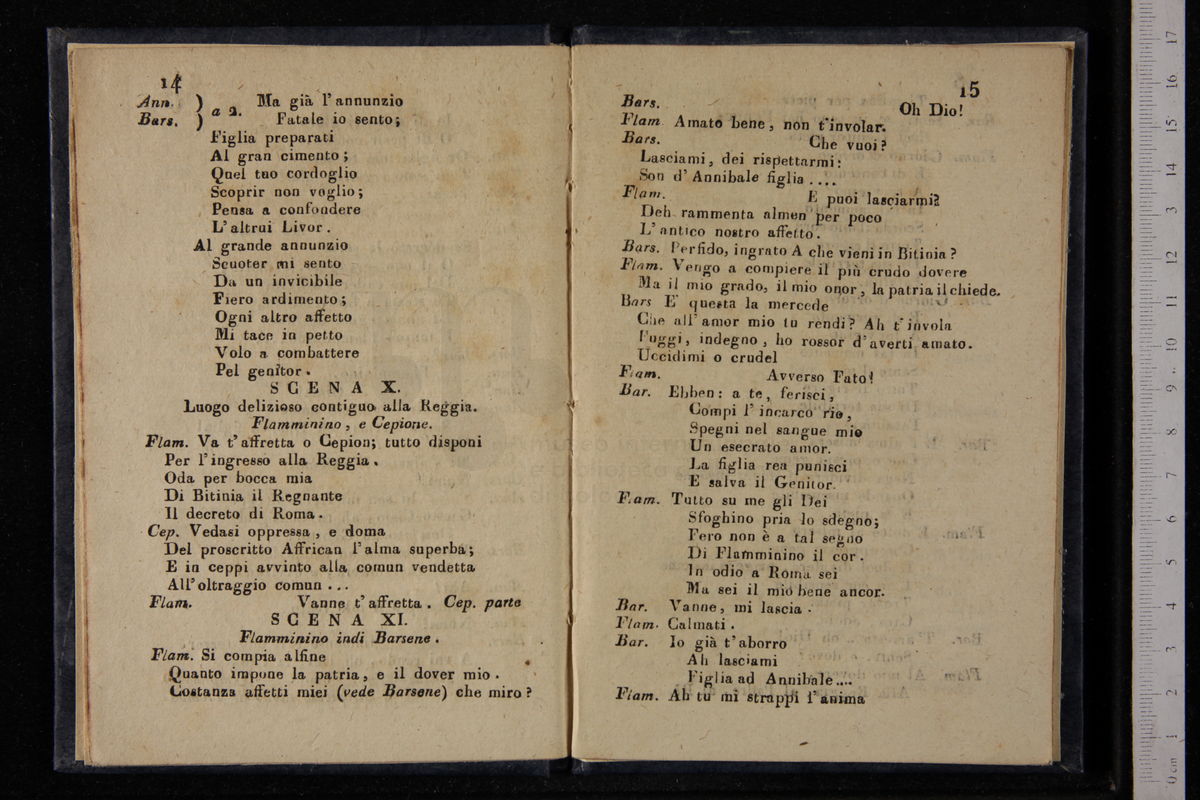 14
Ann. ) a 2. Ma già l'annunzio
Bars. ) Fatale io sento;
Figlia preparati
Al gran cimento;
Quel tuo cordoglio
Scoprir non voglio;
Pensa a confondere
L'altrui Livor.
Al grande annunzio
Scuoter mi sento
Da un invicibile
Fiero ardimento;
Ogni altro affetto
Mi tace in petto
Volo a combattere
Pel genitor.
SCENA X.
Luogo delizioso contiguo alla Reggia.
Flamminino, e Cepione.
Flam. Va t'affretta o Cepion; tutto disponi
Per l'ingresso alla Reggia.
Oda per bocca mia
Di Bitinia il Regnante
Il decreto di Roma.
Cep. Vedasi oppressa, e doma
Del proscritto Affrican l'alma superba;
E in ceppi avvinto alla comun vendetta
All'oltraggio comun ...
Flam. Vanne t'affretta. Cep. parte
SCENA XI.
Flamminino indi Barsene.
Flam. Si compia alfine
Quanto impone la patria, e il dover mio.
Costanza affetti miei (vede Barsene) che miro?
15
Bars. Oh Dio!
Flam. Amato bene, non t'involar.
Bars. Che vuoi?
Lasciami, dei rispettarmi:
Son d'Annibale figlia ....
Flam. E puoi lasciarmi?
Deh rammenta almen per poco
L'antico nostro affetto.
Bars. Perfido, ingrato A che vieni in Bitinia?
Flam. Vengo a compiere il più crudo dovere
Ma il mio grado, il mio onor, la patria il chiede.
Bars E' questa la mercede
Che all'amor mio tu rendi? Ah t'invola
Fuggi, indegno, ho rossor d'averti amato.
Uccidimi o crudel
Flam. Avverso Fato!
Bar. Ebben: a te, ferisci,
Compi l'incarco rio,
Spegni nel sangue mio
Un esecrato amor.
La figlia rea punisci
E salva il Genitor.
Flam. Tutto su me gli Dei
Sfoghino pria lo sdegno;
Fero non è a tal segno
Di Flamminino il cor.
In odio a Roma sei
Ma sei il mio bene ancor.
Bar. Vanne, mi lascia.
Flam. Calmati.
Bar. Io già t'aborro
Ah lasciami
Figlia ad Annibale ....
Flam. Ah tu mi strappi l'anima